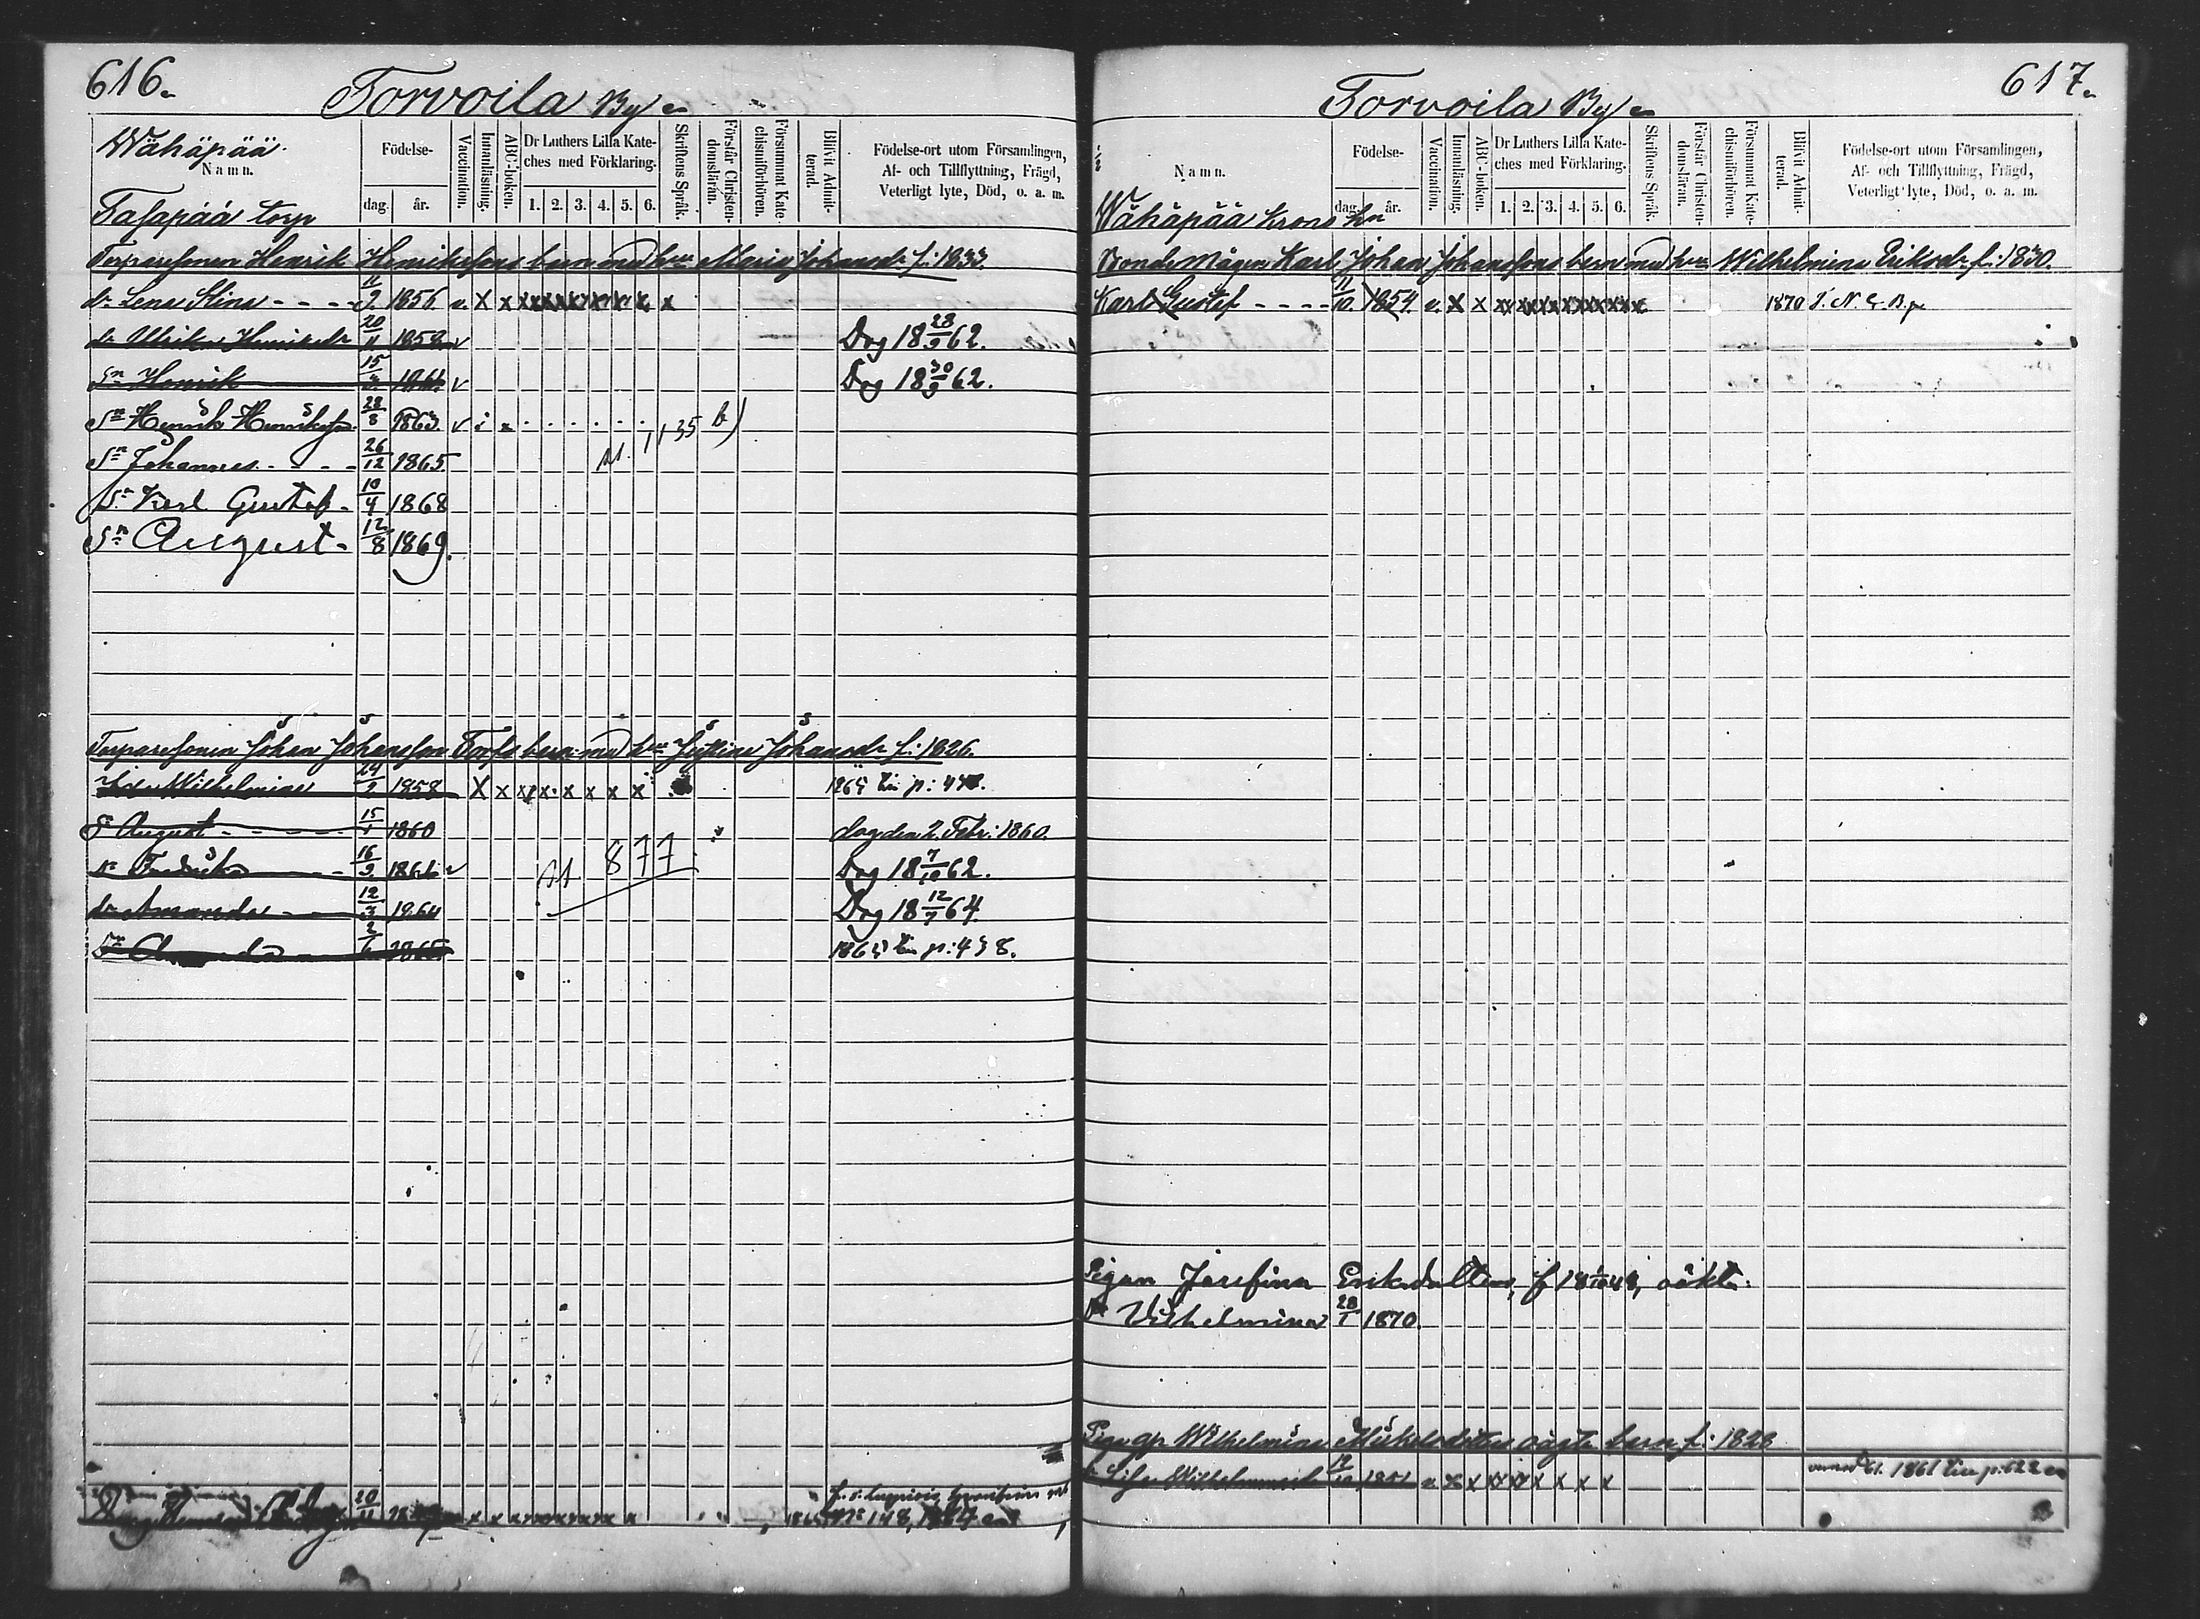 616.
Torvoila By
Wähäpää
Namn.
Födelse-
dag.
år.
Vaccination.
Innanläsning.
ABC-boken.
Dr Luthers Lilla Kate-
ches med Förklaring.
1. 2. 3. 4. 5. 6.
Skriftens Språk.
Förstår Christen-
domsläran.
Försummat Kate-
chismiförhören.
Blifvit Admit-
terad.
Födelse-ort utom Församlingen,
Af- och Tillflyttning, Frägd,
Veterligt lyte, Död, o. a. m.
torp
Torparesonen Henrik Henrikssons barn med hu Maria Johansdr f: 1833.
dr Lena Stina 11/2 1856 v. X x x x x x x x x
dr Ulrika Henriksdr 20/11 1858 v Dog 18 28/9 62.
Sn Henrik 15/3 1861 v Dog 18 30/9 62.
Sn Henrik Henriksson 28/8 1863 v
1135 b)
Sn Johannes 26/12 1865
Sn Karl Gustaf 10/4 1868
Sn August 12/8 1869.
Torparesonen Johan Johansson barn med hu Johansdr f: 1826.
Wilhelmina 24/2 1858 X x x x x x x x
Sn August 15/1 1860 dog den 2. Febr: 1860.
Fredrik 16/9 1861 v 877 Dog 18 7/10 62.
dr Amanda 12/3 1864 Dog 18 12/7 64.
2/6 1865 p: 458.
20/11
617.
Torvoila By
Namn.
Födelse-
dag.
år.
Vaccination.
Innanläsning.
ABC-boken.
Dr Luthers Lilla Kate-
ches med Förklaring.
1. 2. 3. 4. 5. 6.
Skriftens Språk.
Förstår Christen-
domsläran.
Försummat Kate-
chismiförhören.
Blifvit Admit-
terad.
Födelse-ort utom Församlingen,
Af- och Tillflyttning, Frägd,
Veterligt lyte, Död, o. a. m.
Wähäpää krono hn
Bonde Mågen Karl Johan Johanssons barn med hu Wilhelmina Eriksdr f: 1830.
Karl Gustaf 11/10 1854. v. x x 1870
Pigan Josefina Eriksdotters, f 18 1/10 48, oäkta.
dr Vilhelmina 28/1 1870.
Wilhelmina Mickelsdotters oägta barn f: 1828
Wilhelmina 12/10 1851 v x x x x x x x x 1861 p: 622